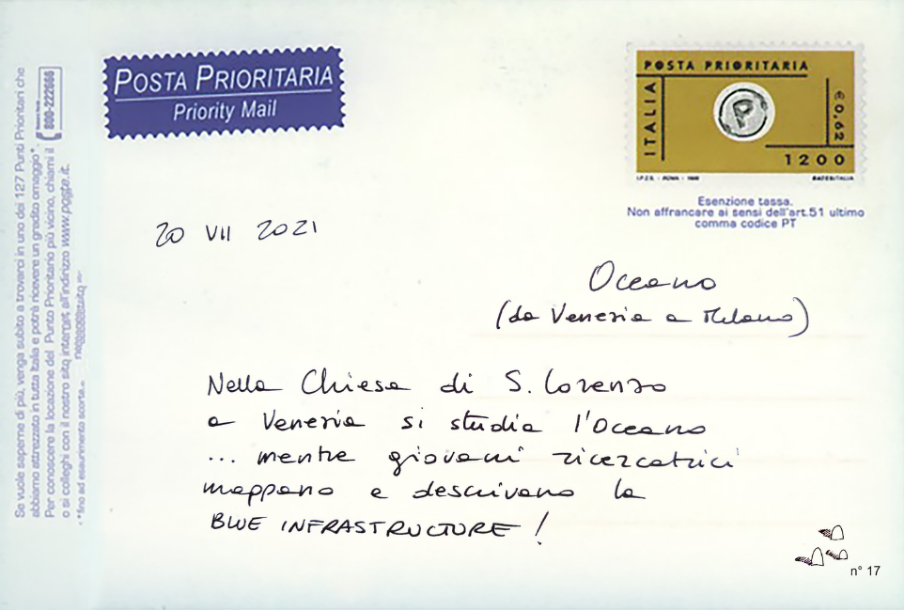 Se vuole saperne di più, venga subito a trovarci in uno dei 127 Punti Prioritari che
abbiamo attrezzato in tutta Italia e potrà ricevere un gradito omaggio*.
Per conoscere la locazione del Punto Prioritario più vicino, chiami il
800-222666
o si colleghi con il nostro sito internet all'indirizzo www.poste.it.
*fino ad esaurimento scorte
POSTA PRIORITARIA
Priority Mail
POSTA PRIORITARIA
ITALIA
P
€0,62
1200
I.P.Z.S. - ROMA - 1999
Esenzione tassa.
Non affrancare ai sensi dell'art.51 ultimo
comma codice PT
20 VII 2021
Oceano
(da Venezia a Milano)
Nella Chiesa di S. Lorenzo
a Venezia si studia l'Oceano
... mentre giovani ricercatrici
mappano e descrivono la
BLUE INFRASTRUCTURE !
n° 17